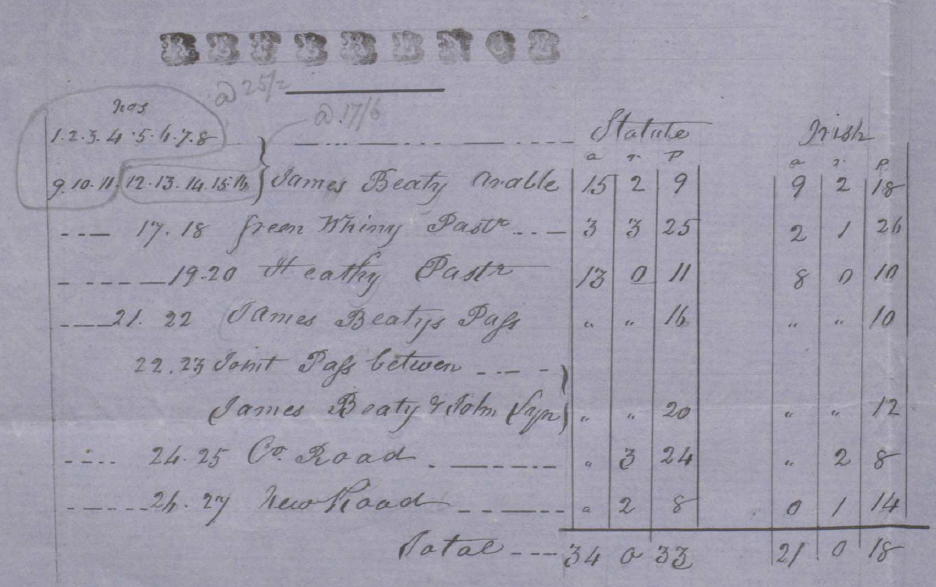 REFERENCE
@ 25/2
nos @ 17/6 Statute Irish
1.2.3.4.5.6.7.8 a r p a r p
9.10.11.12.13.14.15.16 James Beaty Arable 15 2 9 9 2 18
17.18 Green Whiny Pastr 3 3 25 2 1 26
19.20 Heathy Pastr 13 0 11 8 0 10
21. 22 James Beatys Pass " " 16 " " 10
22.23 Joint Pass betwen
James Beaty & John " " 20 " " 12
24.25 Co. Road " 3 24 " 2 8
26.27 New Road " 2 8 0 1 14
Total 34 0 33 21 0 18